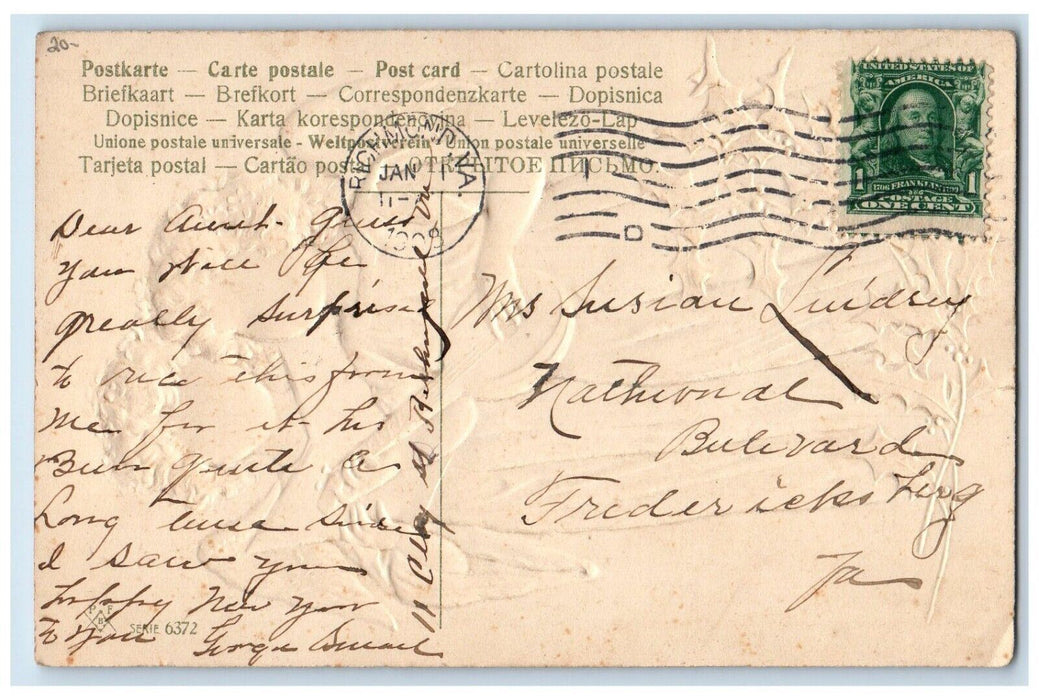 20-
Postkarte — Carte postale — Post card — Cartolina postale
Briefkaart — Brefkort — Correspondenzkarte — Dopisnica
Dopisnice — Karta korespondencyjna — Levelező-Lap
Unione postale universale - Weltpostverein - Union postale universelle
Tarjeta postal — Cartão postal — ОТКРЫТОЕ ПИСЬМО.
RICHMOND, VA.
JAN 1
11-
1908
D
UNITED STATES OF
AMERICA
1 1706 FRANKLIN 1790 1
POSTAGE
ONE CENT
Dear Aunt
you will be
greatly surprised
to rice this from
me for it has
Bein quite a
Long time since
I saw you
Happy New Year
To you George
11 Clay st Richmond
Mrs Susian Lindsey
Nathional
Bulevard
Fredericksberg
Va
P F
B
SERIE 6372